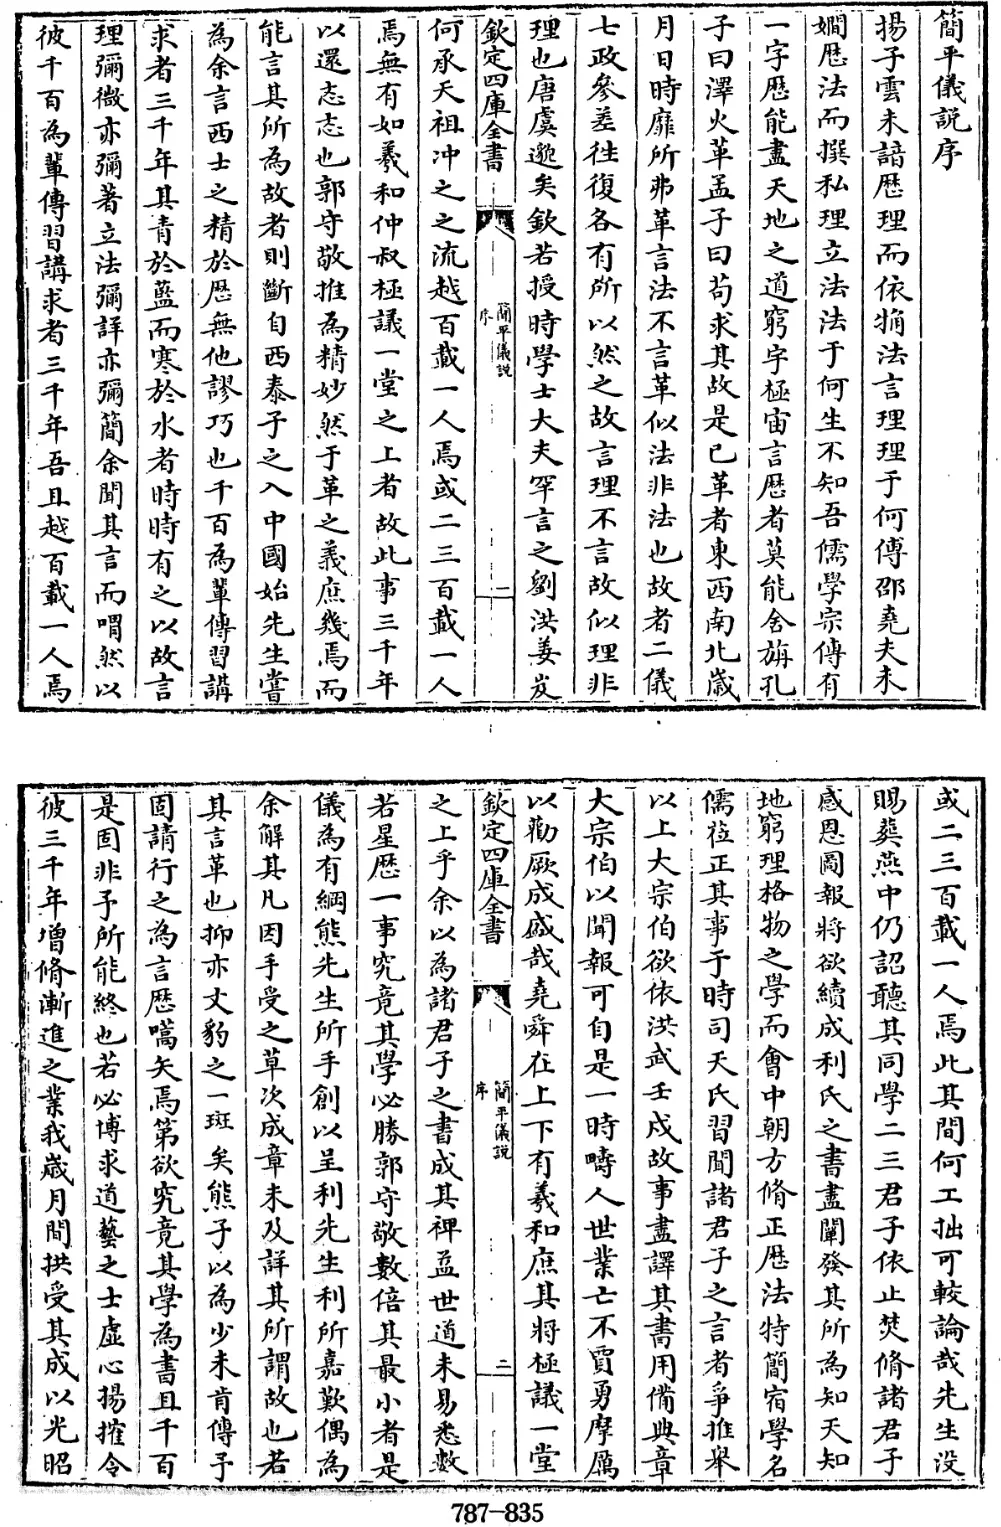 簡平儀説序
揚子雲未諳厯理而依牅法言理理于何傳邵堯夫未
嫺厯法而撰私理立法法于何生不知吾儒學宗傳有
一字厯能盡天地之道窮宇極宙言厯者莫能舍旃孔
子曰澤火革孟子曰苟求其故是已革者東西南北歳
月日時靡所弗革言法不言革似法非法也故者二儀
七政參差徃復各有所以然之故言理不言故似理非
理也唐虞邈矣欽若授時學士大夫罕言之劉洪姜岌
欽定四庫全書
簡平儀説
序
二
何承天祖沖之之流越百載一人焉或二三百載一人
焉無有如羲和仲叔極議一堂之上者故此事三千年
以還忞忞也郭守敬推為精妙然于革之義庶幾焉而
能言其所為故者則斷自西泰子之入中國始先生嘗
為余言西士之精於厯無他謬巧也千百為軰傳習講
求者三千年其青於藍而寒於水者時時有之以故言
理彌微亦彌著立法彌詳亦彌簡余聞其言而喟然以
彼千百為軰傳習講求者三千年吾且越百載一人焉
或二三百載一人焉此其間何工拙可較論哉先生沒
賜葬燕中仍詔聽其同學二三君子依止焚脩諸君子
感恩圖報將欲續成利氏之書盡闡發其所為知天知
地窮理格物之學而會中朝方脩正厯法特簡宿學名
儒蒞正其事于時司天氏習聞諸君子之言者爭推舉
以上大宗伯欲依洪武壬戌故事盡譯其書用備典章
大宗伯以聞報可自是一時疇人世業亡不賈勇摩厲
以勸厥成盛哉堯舜在上下有羲和庶其將極議一堂
欽定四庫全書
簡平儀説
序
二
之上乎余以為諸君子之書成其裨益世道未易悉數
若星厯一事究竟其學必勝郭守敬數倍其最小者是
儀為有綱熊先生所手創以呈利先生利所嘉歎偶為
余解其凡因手受之草次成章未及詳其所謂故也若
其言革也抑亦文豹之一斑矣熊子以為少未肯傳予
固請行之為言厯嚆矢焉第欲究竟其學為書且千百
是固非予所能終也若必博求道藝之士虚心揚搉令
彼三千年增脩漸進之業我歳月間拱受其成以光昭
787—835